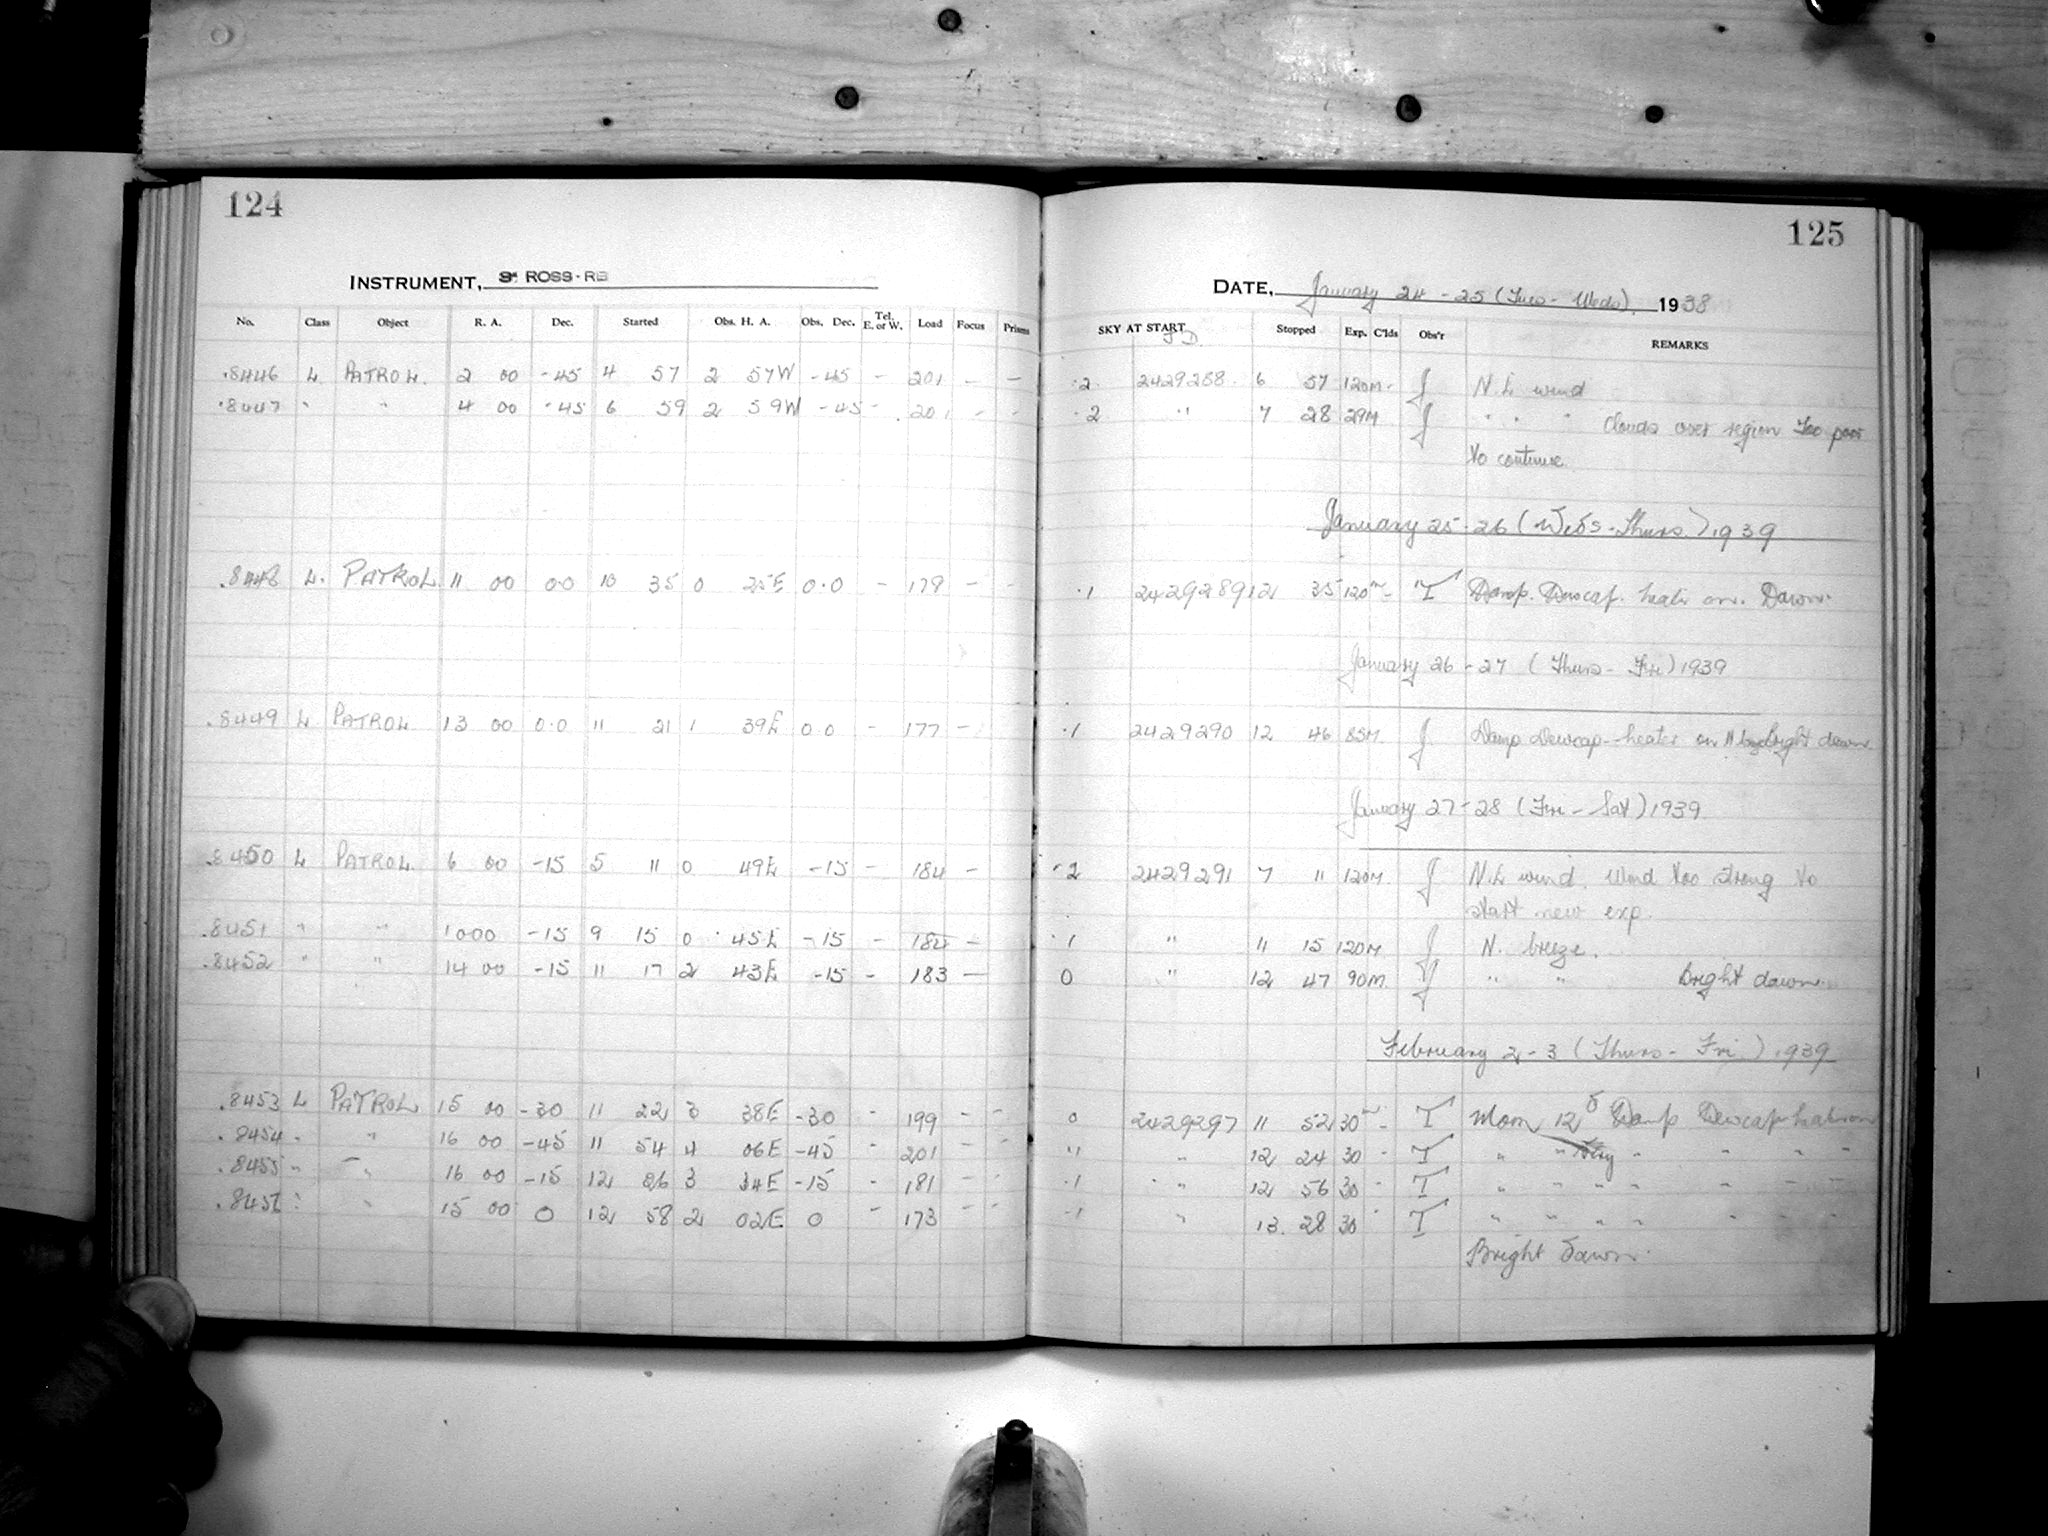 124
INSTRUMENT, 3" ROSS-RB
No. Class Object R. A. Dec. Started Obs. H. A. Obs. Dec. Tel. E. or W. Load Focus Prisms
.8446 L PATROL. 2 00 -45 4 57 2 57W -45 - 201 - -
.8447 " " 4 00 -45 6 59 2 59W -45 - 201 - -
.8448 L. PATROL 11 00 0.0 10 35 0 25E 0.0 - 179 - -
.8449 L PATROL 13 00 0.0 11 21 1 39E 0.0 - 177 -
.8450 L PATROL 6 00 -15 5 11 0 49E -15 - 184 -
.8451 " " 10 00 -15 9 15 0 45E -15 - 184 -
.8452 " " 14 00 -15 11 17 2 43E -15 - 183 -
.8453 L PATROL 15 00 -30 11 22 3 38E -30 - 199 - -
.8454 " " 16 00 -45 11 54 4 06E -45 - 201 - -
.8455 " " 16 00 -15 12 26 3 34E -15 - 181 - -
.8456 " " 15 00 0 12 58 2 02E 0 - 173 - -
125
DATE, January 24-25 (Tues-Weds). 1938
SKY AT START J D. Stopped Exp. C'lds Obs'r REMARKS
.2 2429288. 6 57 120M - J N.E. wind
.2 " 7 28 29M J " " " Clouds over region Too poor
to continue
January 25-26 (Weds-Thurs.) 1939
.1 2429289 12 35 120m - T Damp. Dewcap. heater on. Dawn.
January 26-27 (Thurs-Fri) 1939
.1 2429290 12 46 85M. J Damp Dewcap-heater on bright dawn
January 27-28 (Fri-Sat) 1939
.2 2429291 7 11 120M. J N.E. wind. Wind too strong to
start new exp.
.1 " 11 15 120M J N. breeze.
0 " 12 47 90M. J " " Bright dawn.
February 2-3 (Thurs-Fri.) 1939
0 2429297 11 52 30m - T Moon 12 Damp Dewcap heater on
.1 " 12 24 30 - T " " " " " "
.1 " 12 56 30 - T " " " " " "
.1 " 13. 28 30 - T " " " " " "
Bright Dawn.